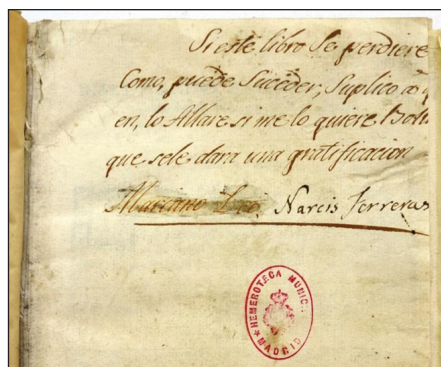 Si este libro Se perdiere
Como, puede Suceder, Suplico a
en, lo Allare si me lo quiere
que sele dara una gratificacion
Mariano Narcis Ferreras
HEMEROTECA MUNIC
MADRID